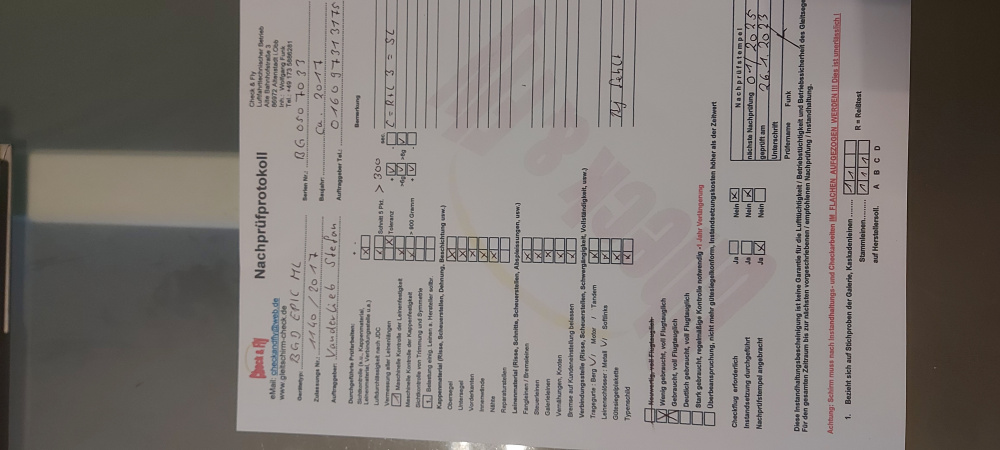 Check & Fly
Luftfahrttechnischer Betrieb
Alte Bahnhofstraße 3
86972 Altenstadt / Obb
Inh.: Wolfgang Funk
Tel.: +49 173
Check & Fly
eMail: checkandfly@web.de
www.gleitschirm-check.de
Nachprüfprotokoll
Gerätetyp: BGD EPIC ML
Serien Nr.: BG 0507033
Zulassungs Nr.: 1140/2017
Baujahr: Ca. 2017
Auftraggeber: Vanderlieb Stefan
Auftraggeber Tel.: 0160 97313175
Durchgeführte Prüfarbeiten:
+ -
Bemerkung
Sichtkontrolle (u.: Kappenmaterial,
Leinenmaterial, Verbindungsteile u.a.)
Luftdurchlässigkeit nach JDC
Schnitt 5 Pkt. > 300 sec.
C = R+L 3 = SL
Vermessung aller Leinenlängen
Toleranz
1 Maschinelle Kontrolle der Leinenfestigkeit
Maschinelle Kontrolle der Kappenfestigkeit
> 800 Gramm
Sichtkontrolle von Trimmung und Symmetrie
1 Belastung einlg. Leinen a. Hersteller sollbr.
Kappenmaterial (Risse, Scheuerstellen, Dehnung, Beschichtung usw.)
Obersegel
Untersegel
Vorderkanten
Innenwände
Nähte
Reparaturstellen
Leinenmaterial (Risse, Schnitte, Scheuerstellen, Abspleissungen, usw.)
Fangleinen / Bremsleinen
Steuerleinen
Galerieleinen
Vernähungen, Knoten
Bremse auf Kundeneinstellung belassen
Verbindungsteile (Risse, Scheuerstellen, Schwergängigkeit, Vollständigkeit, usw.)
Tragegurte - Berg V / Motor / Tandem
Leinenschlösser : Metall V / Softlinks
Gütesiegelplakette
Typenschild
fehlt
Neuwertig, voll Flugtauglich
Wenig gebraucht, voll Flugtauglich
Gebraucht, voll Flugtauglich
Deutlich gebraucht, voll Flugtauglich
Stark gebraucht, regelmäßige Kontrolle notwendig
Überbeansprucht, nicht mehr gütesiegelkonform, Instandsetzungskosten höher als der Zeitwert
Checkflug erforderlich
Ja
Nein
Instandsetzung durchgeführt
Ja
Nein
Nachprüfstempel angebracht
Ja
Nein
Nachprüfstempel
nächste Nachprüfung 01/2025
geprüft am 26.1.2023
Unterschrift
Prüfername Funk
Diese Instandhaltungsbescheinigung ist keine Garantie für die Lufttüchtigkeit / Betriebstüchtigkeit und Betriebssicherheit des
Für den gesamten Zeitraum bis zur nächsten vorgeschriebenen / empfohlenen Nachprüfung / Instandhaltung.
Achtung: Schirm muss nach Instandhaltungs- und Checkarbeiten IM FLACHEN AUFGEZOGEN WERDEN !!! Dies ist unerlässlich !
1. Bezieht sich auf Stichproben der Galerie, Kaskadenleinen
1 1
Stammleinen
1 1 1
R = Reißtest
auf Herstellersoll.
A B C D